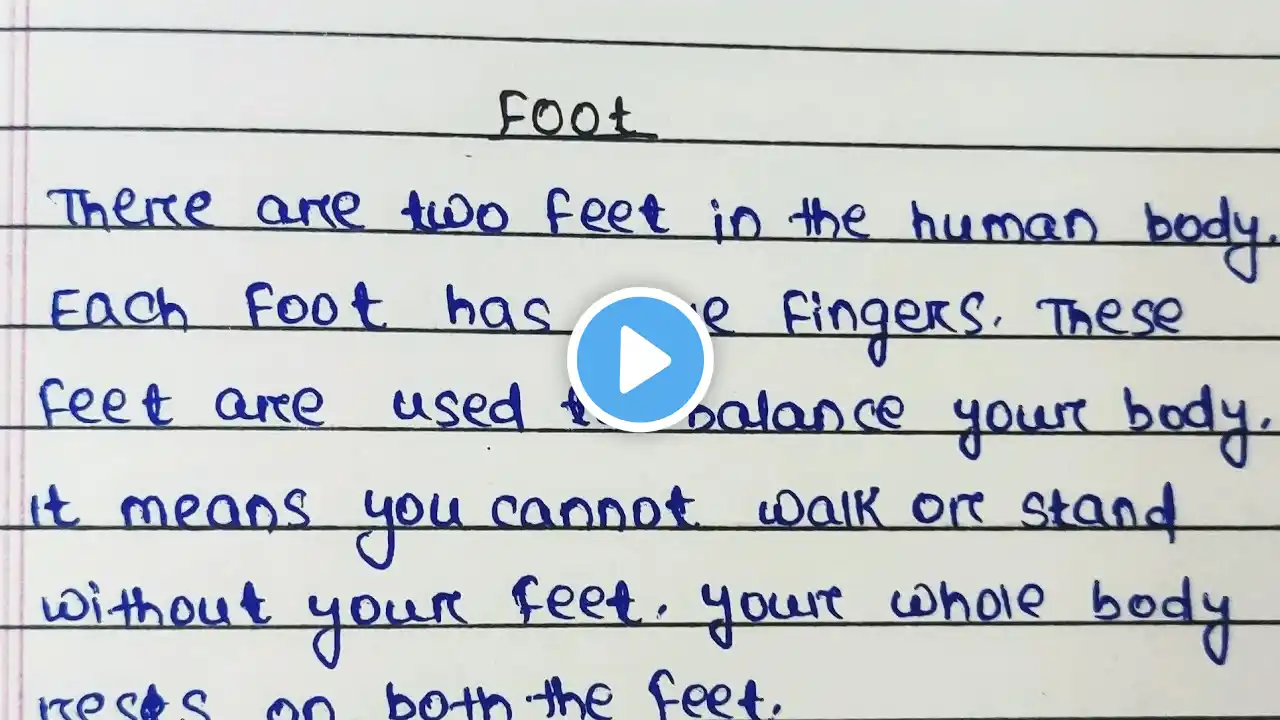 Foot
There are two feet in the human body.
Each foot has fingers. These
feet are used balance your body.
it means you cannot walk or stand
without your feet. your whole body
rests on both the feet.